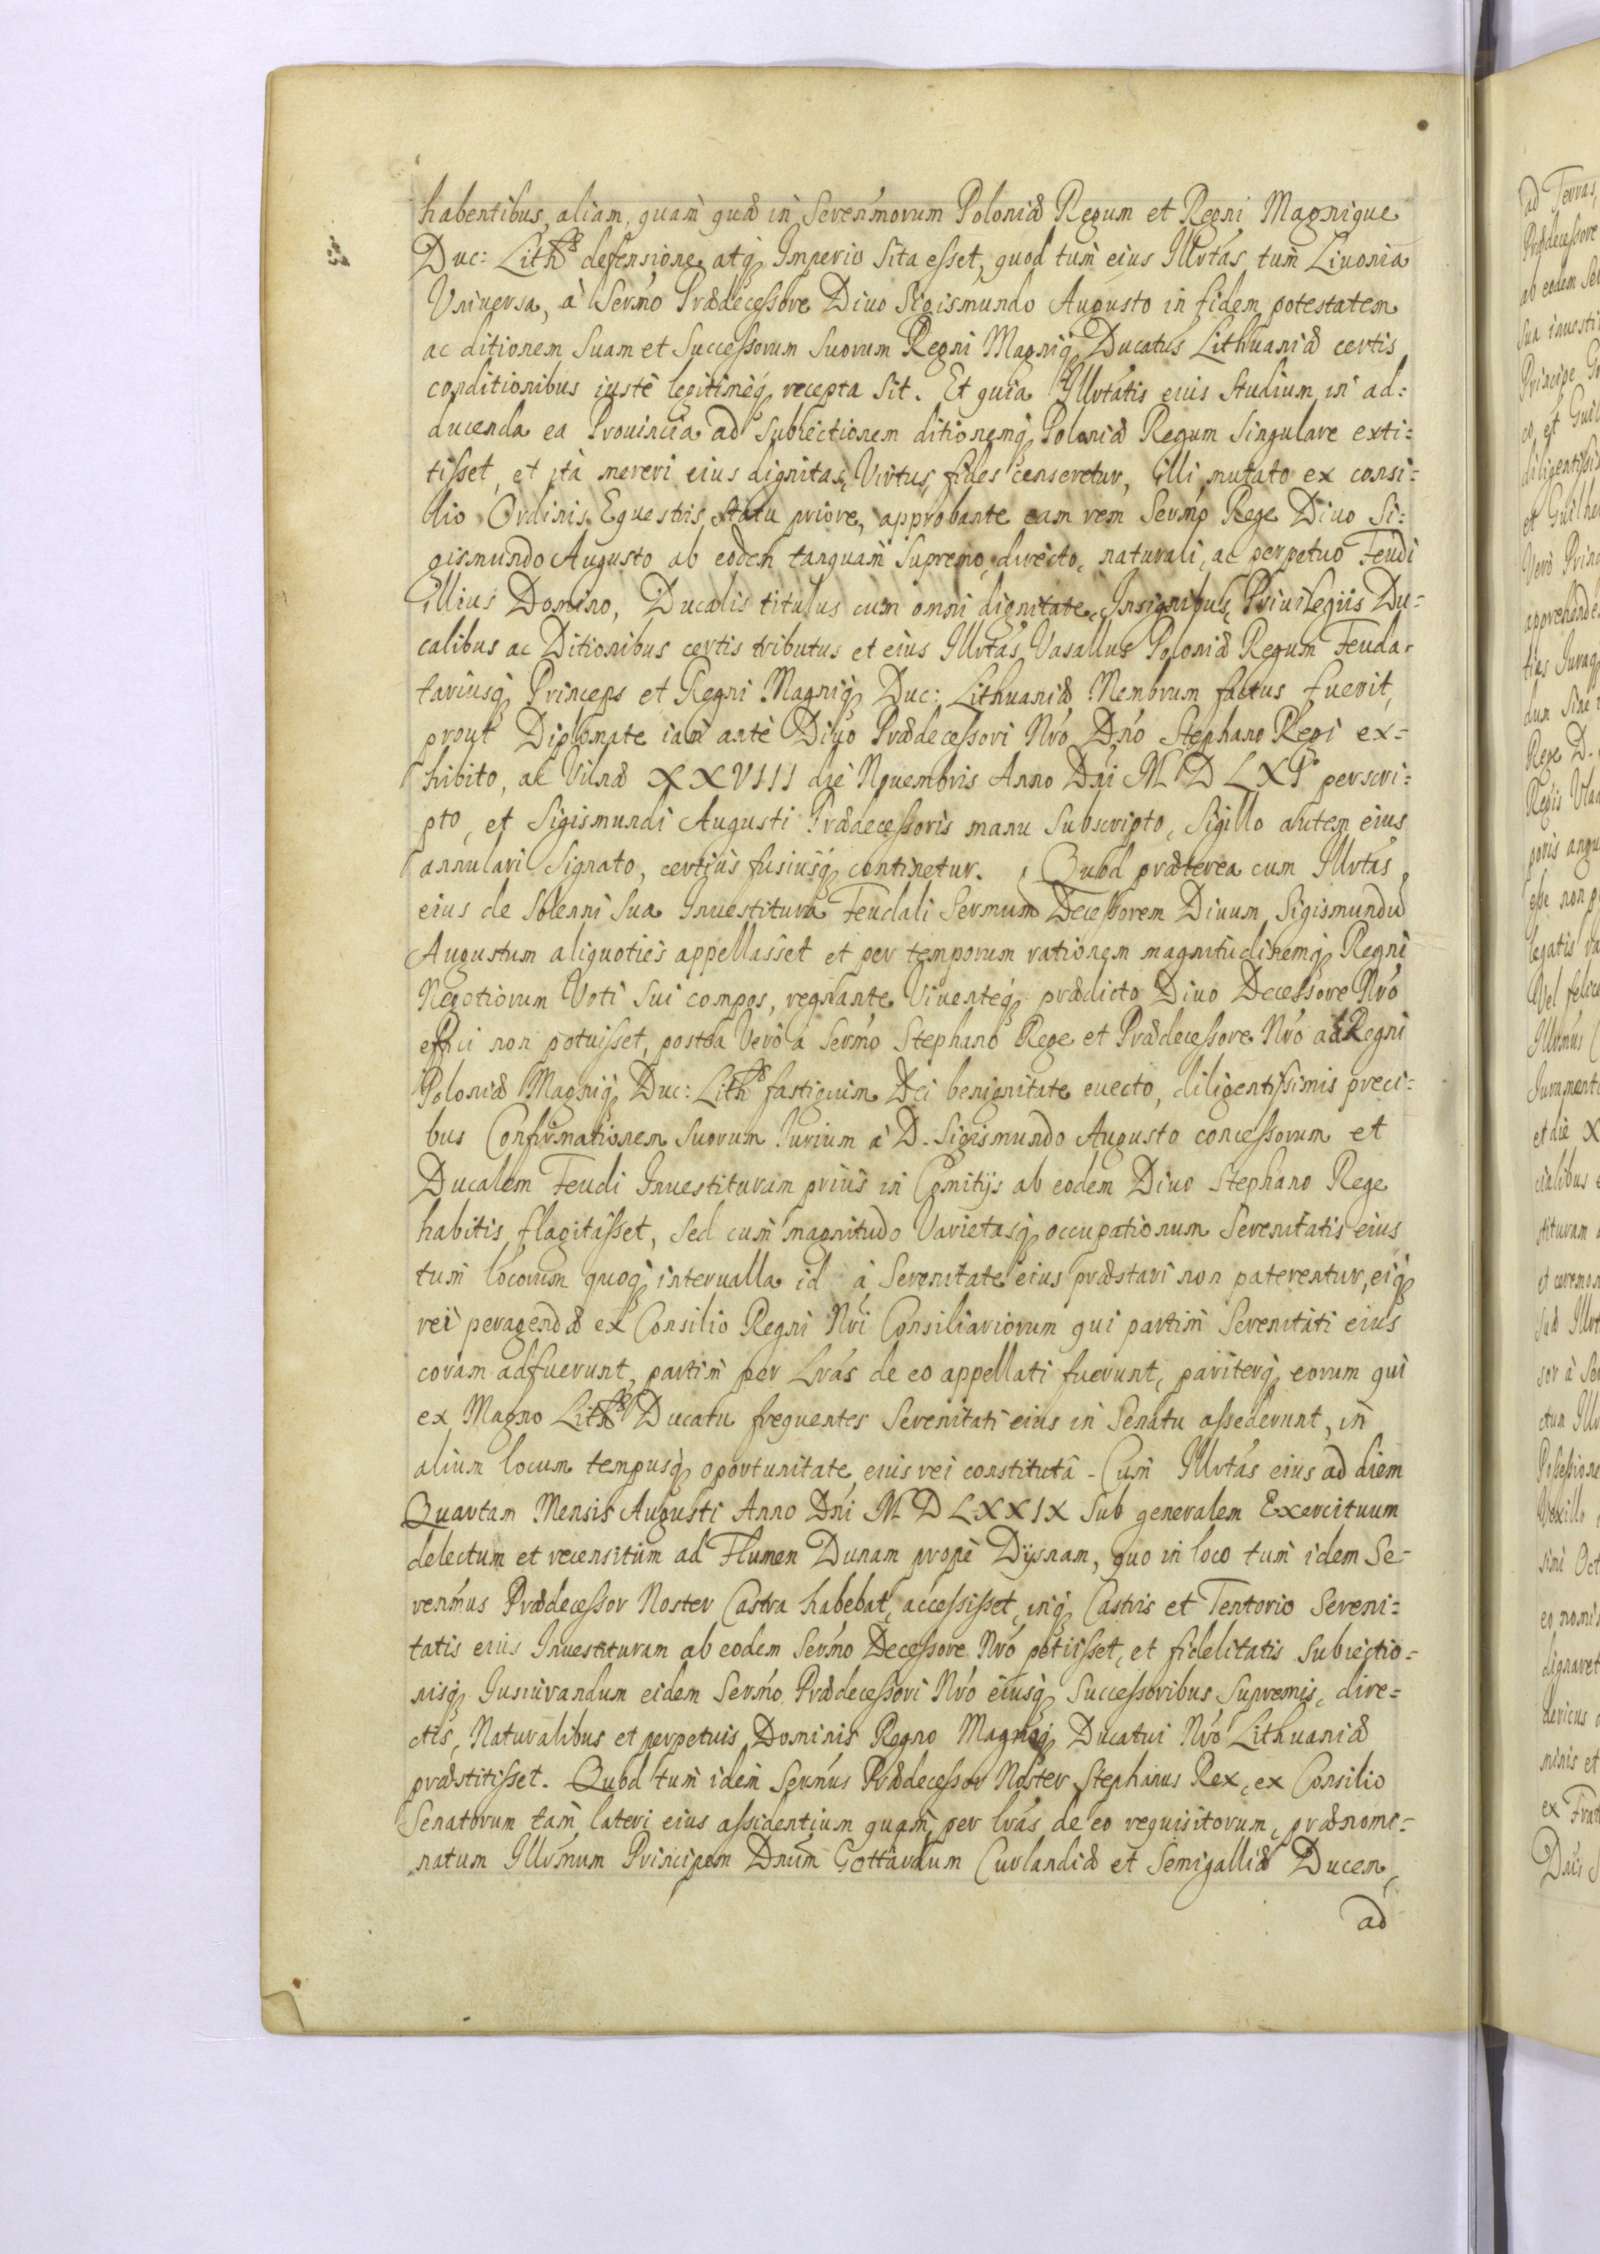 habentibus, aliam, quam quæ in Serenmorum Poloniæ Regum et Regni Magnique
Duc: Lithæ defensione, atq Imperio sita esset, quod tum eius Illrtas tum Liuonia
Vniuersa, à Sermo Prædecessore Diuo Sigismundo Augusto in fidem potestatem
ac ditionem Suam et Successorum Suorum Regni Magniq Ducatus Lithuaniæ certis
conditionibus iustè legitimèq recepta sit. Et quia Illrtatis eius studium in ad=
ducenda ea Prouincia ad subiectionem ditionemq Poloniæ Regum singulare exti=
tisset, et ità mereri eius dignitas, Virtus, fides censeretur, illi mutato ex consi=
lio Ordinis Equestris statu priore, approbante eam rem Sermo Rege Diuo Si=
gismundo Augusto ab eodem tanquam supremo, directo, naturali, ac perpetuo Feudi
illius Domino, Ducalis titulus cum omni dignitate, Insignibus, Priuilegiis Du=
calibus ac Ditionibus certis tributus et eius Illrtas Vasallus Poloniæ Regum Feuda=
tariusq Princeps et Regni Magniq Duc: Lithuaniæ Membrum factus fuerit,
prout Diplomate iam antè Diuo Prædecessori Nro Dno Stephano Regi ex=
hibito, ac Vilnæ XXVIII die Nouembris Anno Dni M D LXI perscri=
pto, et Sigismundi Augusti Prædecessoris manu subscripto, Sigillo autem eius
annulari signato, certius fusiusq continetur. Quod præterea cum Illrtas
eius de solenni sua Inuestitura Feudali Sermum Decessorem Diuum Sigismundũ
Augustum aliquoties appellasset et per temporum rationem magnitudinemq Regni
Negotiorum Voti sui compos, regnante Viuenteq prædicto Diuo Decessore Nro
effici non potuisset, postea Verò a Sermo Stephano Rege et Prædecessore Nro ad Regni
Poloniæ Magniq Duc: Lithæ fastigium Dei benignitate euecto, diligentissimis preci=
bus Confirmationem suorum Iurium à D. Sigismundo Augusto concessorum et
Ducalem Feudi Inuestituram prius in Comitijs ab eodem Diuo Stephano Rege
habitis flagitasset, sed cum magnitudo Varietasq occupationum Serenitatis eius
tum locorum quoq interualla id à Serenitate eius præstari non paterentur, eiq
rei peragendæ ex Consilio Regni Nri Consiliariorum qui partim Serenitati eius
coram adfuerunt, partim per Lras de eo appellati fuerunt, pariterq eorum qui
ex Magno Lithæ Ducatu frequentes Serenitati eius in Senatu assederunt, in
alium locum tempusq oportunitate eius rei constitutâ - Cum Illrtas eius ad diem
Quartam Mensis Augusti Anno Dni M D LXXIX sub generalem Exercituum
delectum et recensitum ad Flumen Dunam propè Dysnam, quo in loco tum idem Se=
renmus Prædecessor Noster Castra habebat, accessisset, inq Castris et Tentorio Sereni=
tatis eius Inuestituram ab eodem Sermo Decessore Nro petiisset, et fidelitatis subiectio=
nisq Iusiurandum eidem Sermo Prædecessori Nro eiusq Successoribus Supremis, dire=
ctis, Naturalibus et perpetuis Dominis Regno Magnoq Ducatui Nro Lithuaniæ
præstitisset. Quod tum idem Sermus Prædecessor Noster Stephanus Rex, ex Consilio
Senatorum tam lateri eius assidentium quam per lras de eo requisitorum, prænomi=
natum Illrmum Principem Dnum Gottardum Curlandiæ et Semigalliæ Ducem,
ad